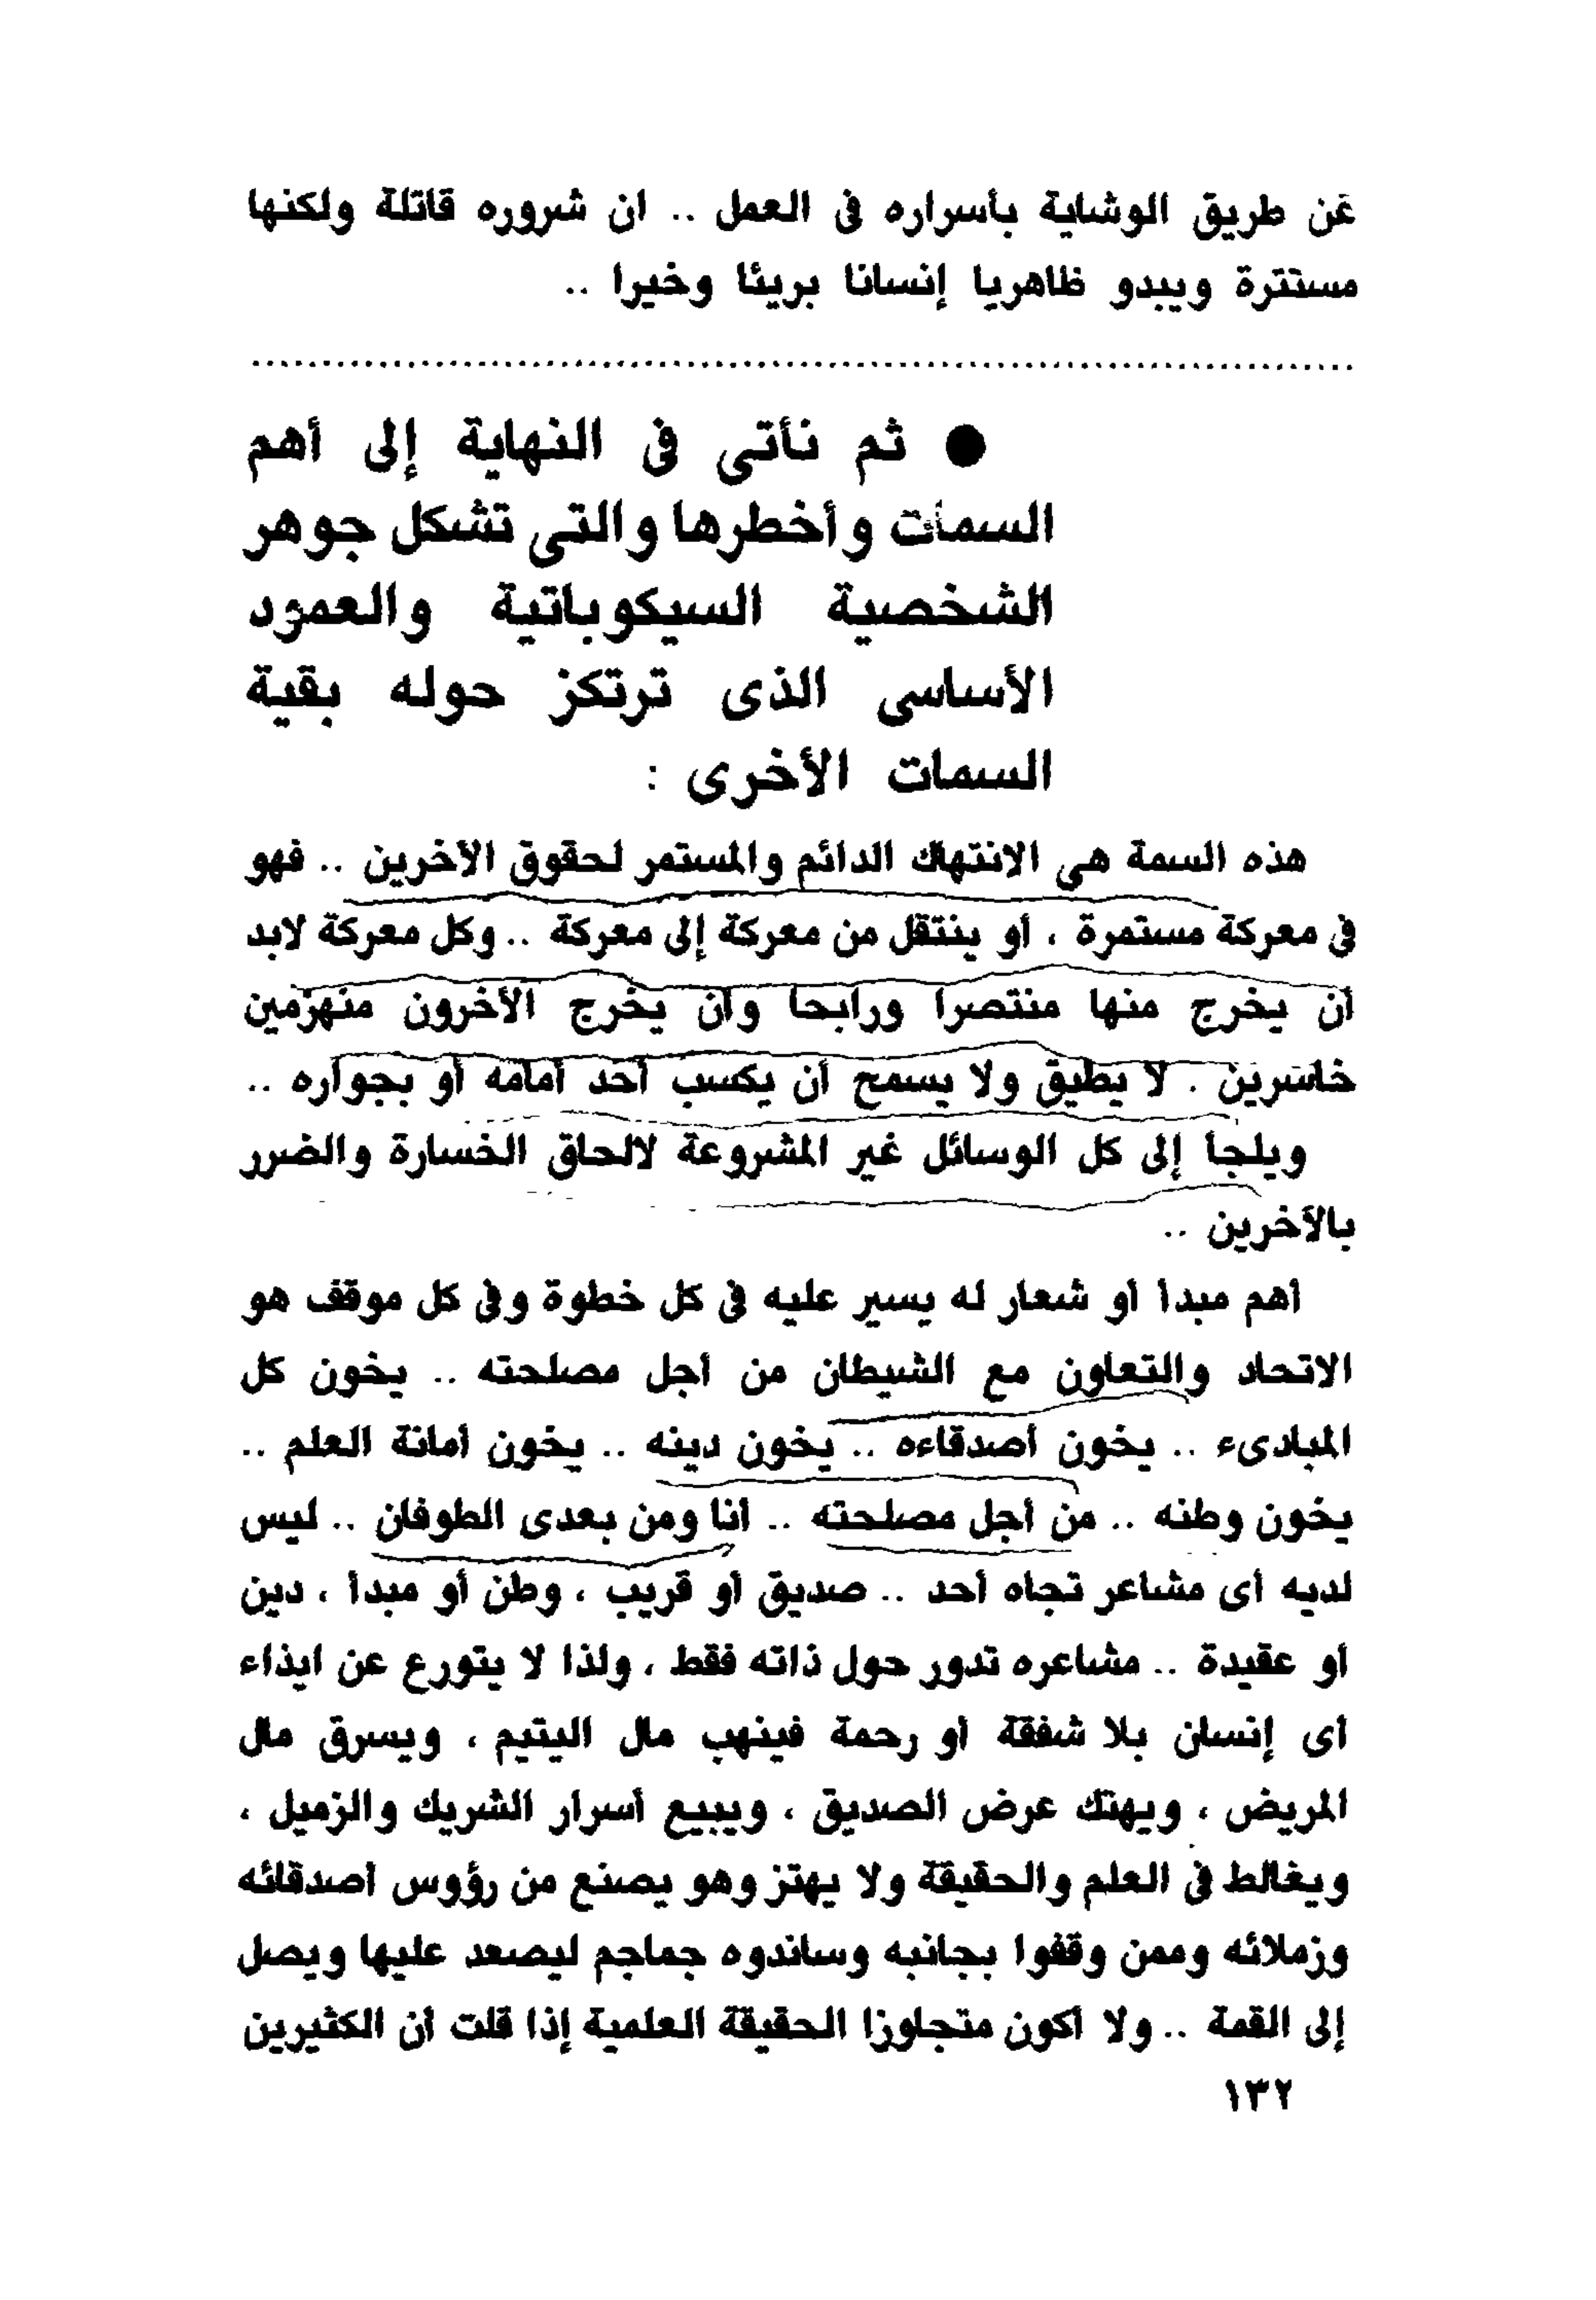 عن طريق الوشاية بأسراره فى العمل .. ان شروره قاتلة ولكنها
مستترة ويبدو ظاهريا إنسانا بريئا وخيرا ..
● ثم نأتى فى النهاية إلى أهم
السمات وأخطرها والتى تشكل جوهر
الشخصية السيكوباتية والعمود
الأساسى الذى ترتكز حوله بقية
السمات الأخرى :
هذه السمة هى الانتهاك الدائم والمستمر لحقوق الآخرين .. فهو
فى معركة مستمرة ، أو ينتقل من معركة إلى معركة .. وكل معركة لابد
أن يخرج منها منتصرا ورابحا وأن يخرج الآخرون منهزمين
خاسرين . لا يطيق ولا يسمح أن يكسب أحد أمامه أو بجواره ..
ويلجأ إلى كل الوسائل غير المشروعة لالحاق الخسارة والضرر
بالآخرين ..
أهم مبدأ أو شعار له يسير عليه فى كل خطوة وفى كل موقف هو
الاتحاد والتعاون مع الشيطان من أجل مصلحته .. يخون كل
المبادىء .. يخون أصدقاءه .. يخون دينه .. يخون أمانة العلم ..
يخون وطنه .. من أجل مصلحته .. أنا ومن بعدى الطوفان .. ليس
لديه أى مشاعر تجاه أحد .. صديق أو قريب ، وطن أو مبدأ ، دين
أو عقيدة .. مشاعره تدور حول ذاته فقط ، ولذا لا يتورع عن ايذاء
أى إنسان بلا شفقة أو رحمة فينهب مال اليتيم ، ويسرق مال
المريض ، ويهتك عرض الصديق ، ويبيع أسرار الشريك والزميل ،
ويغالط فى العلم والحقيقة ولا يهتز وهو يصنع من رؤوس أصدقائه
وزملائه وممن وقفوا بجانبه وساندوه جماجم ليصعد عليها ويصل
إلى القمة .. ولا أكون متجاوزا الحقيقة العلمية إذا قلت أن الكثيرين
١٣٢